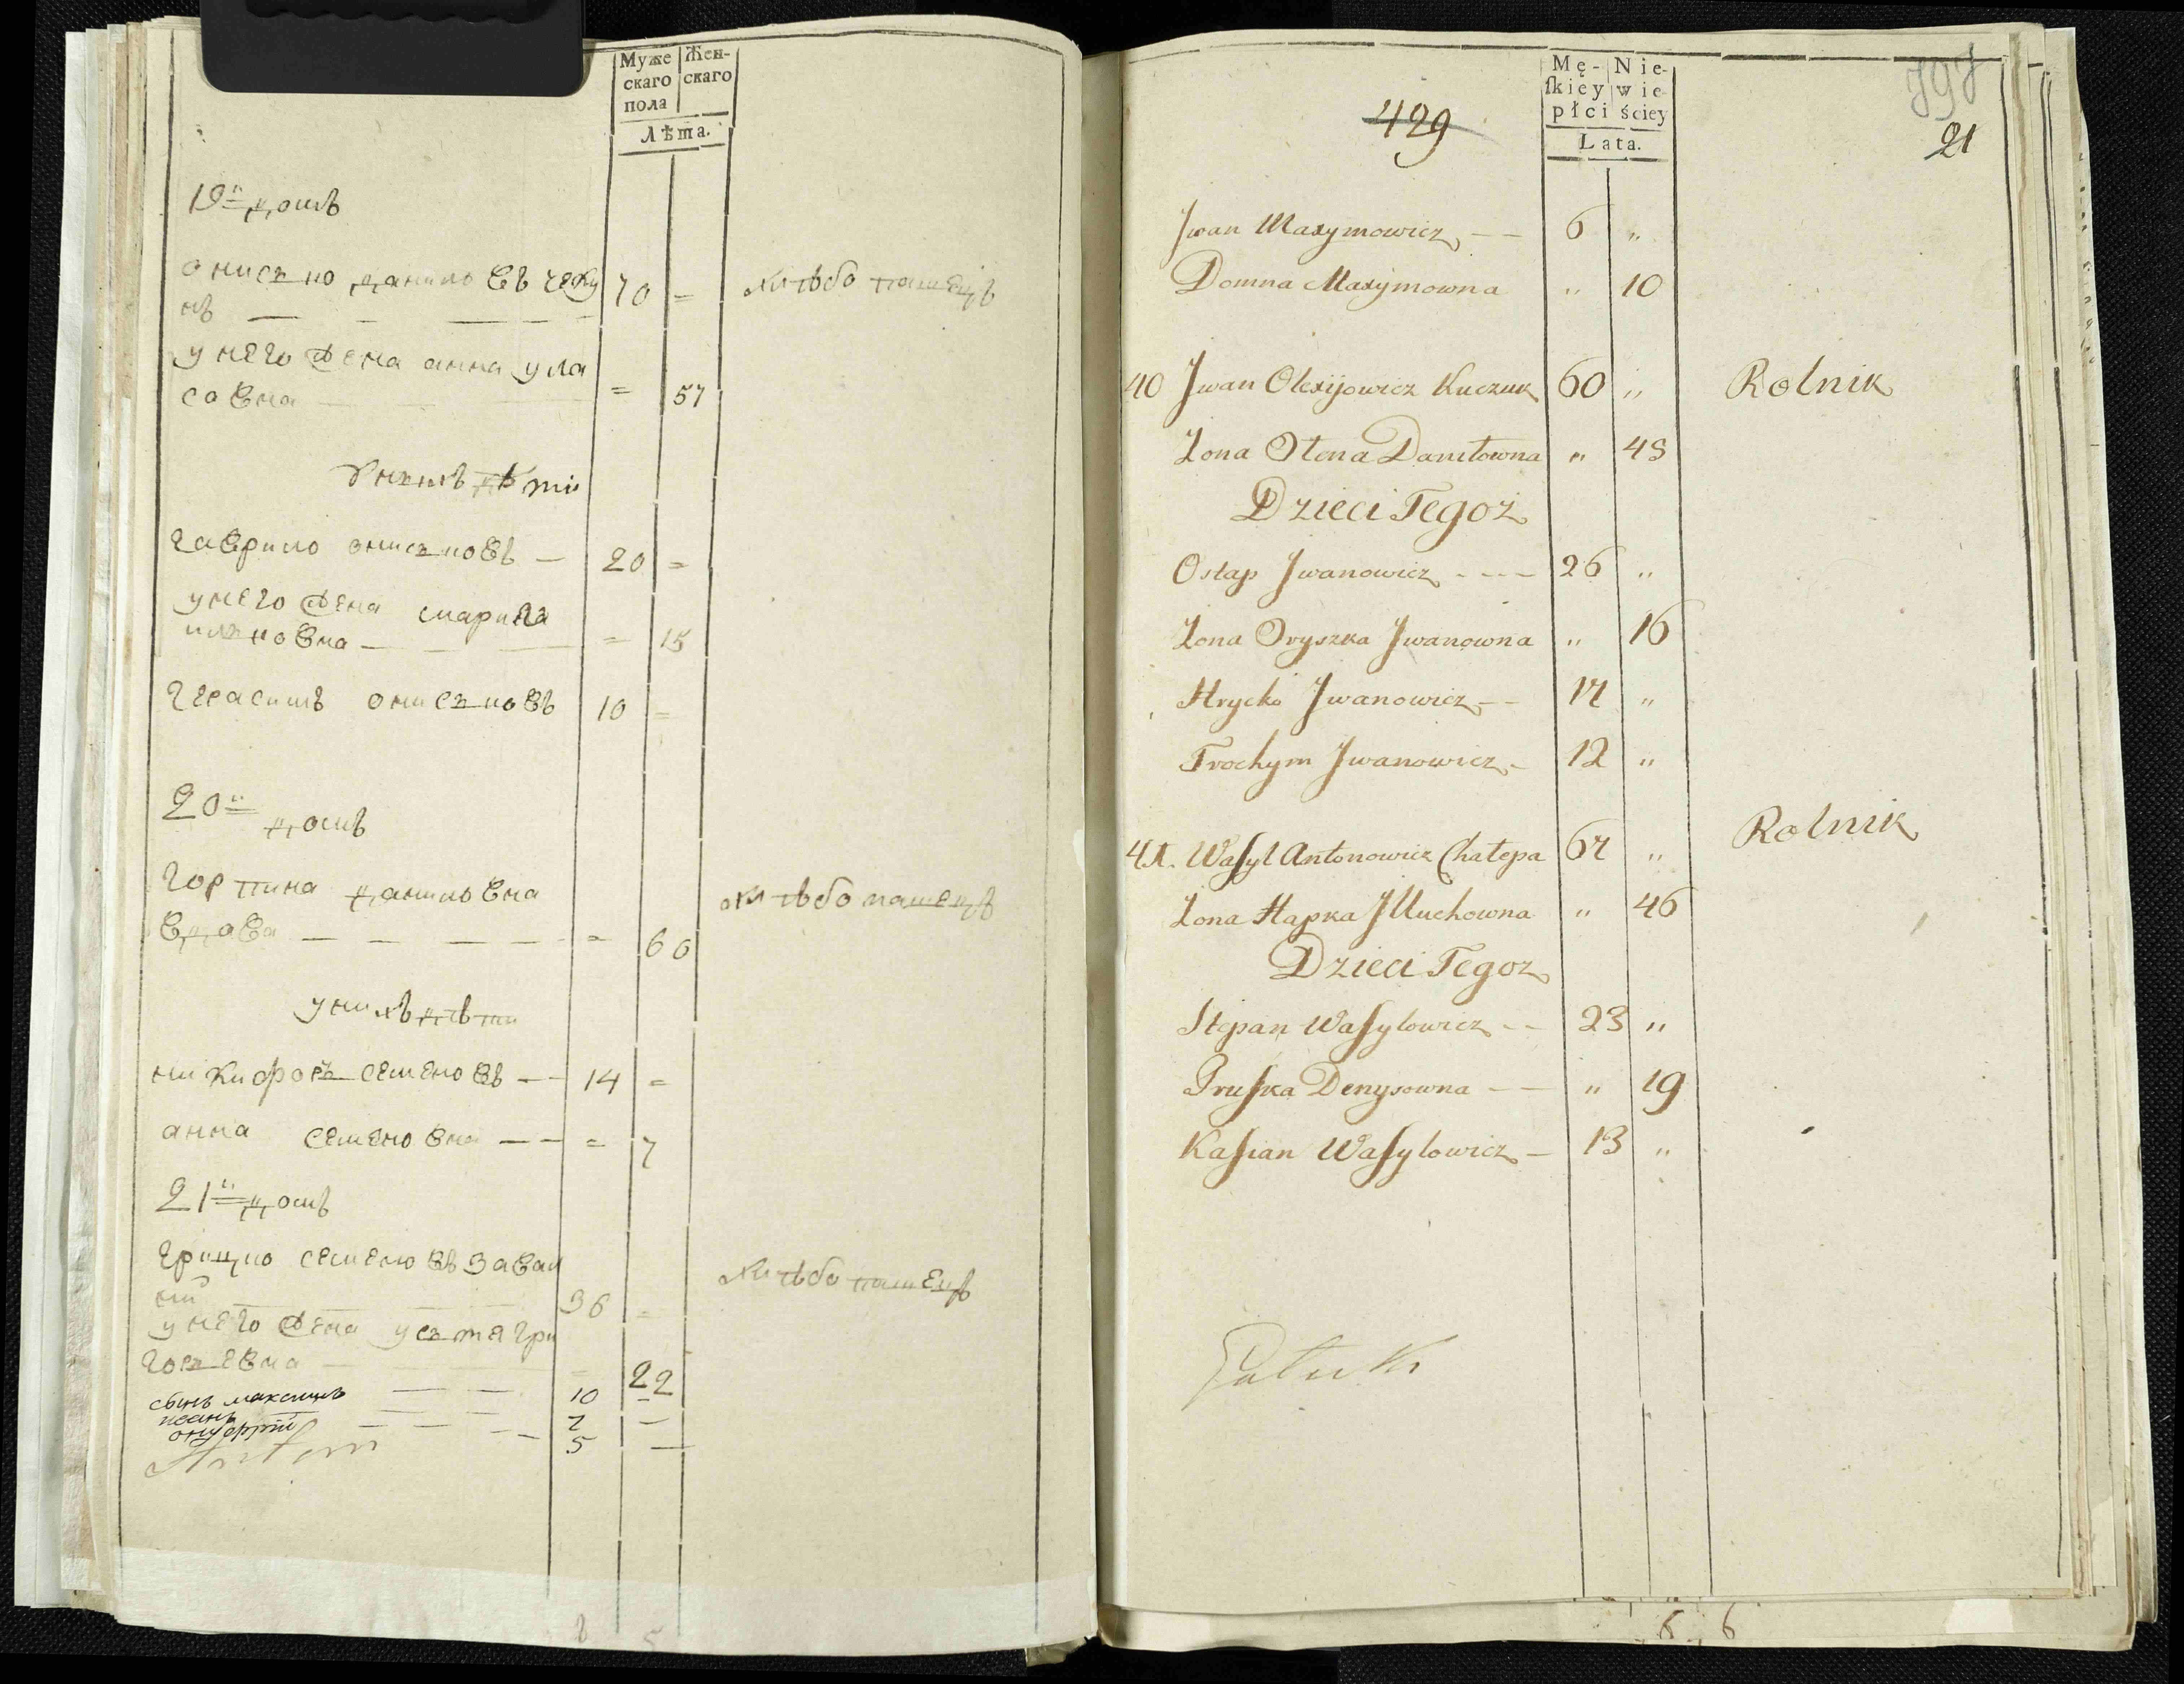 Муже Жен-
скаго скаго
пола
Лѣта.
19й домъ
онисько данило въ чеку 70 = хлѣбо пашецъ
нъ
у него жена анна ула
совна = 57
у нихъ дѣти
гаврилоониськовъ 20 =
у него жена марина
илковна = 15
герасимъ ониськовъ 10 =
20й домъ
горпина даниловна хлѣбо пашецъ
вдова = 60
у нихъ дѣти
никифоръ семеновъ 14 =
анна семеновна = 7
21й домъ
грицко семеновъ хлѣбо пашецъ
36 =
у него жена устя гри
горьевна 22
сынъ максимъ 10 —
иванъ 7 —
онуфрій 5 —
Mę- Nie-
ſkiey wie
płci ściey
Lata.
429
21
Jwan Maxymowicz 6 „
Domna Maxymowna „ 10
40 Jwan Olexijowicz Kuczuk 60 „ Rolnik
Żona Ołena Daniłowna „ 48
Dzieci Tegoż
Ostap Jwanowicz 26 „
Żona Oryszka Jwanowna „ 16
Hrycko Jwanowicz 17 „
Trochym Jwanowicz 12 „
41. Waſyl Antonowicz Chalepa 67 „ Rolnik
Żona Hapka Jlluchowna „ 46
Dzieci Tegoz
Stepan Waſylowicz 23 „
Pruſka Denysowna „ 19
Kaſian Waſylowicz 13 „
6 6